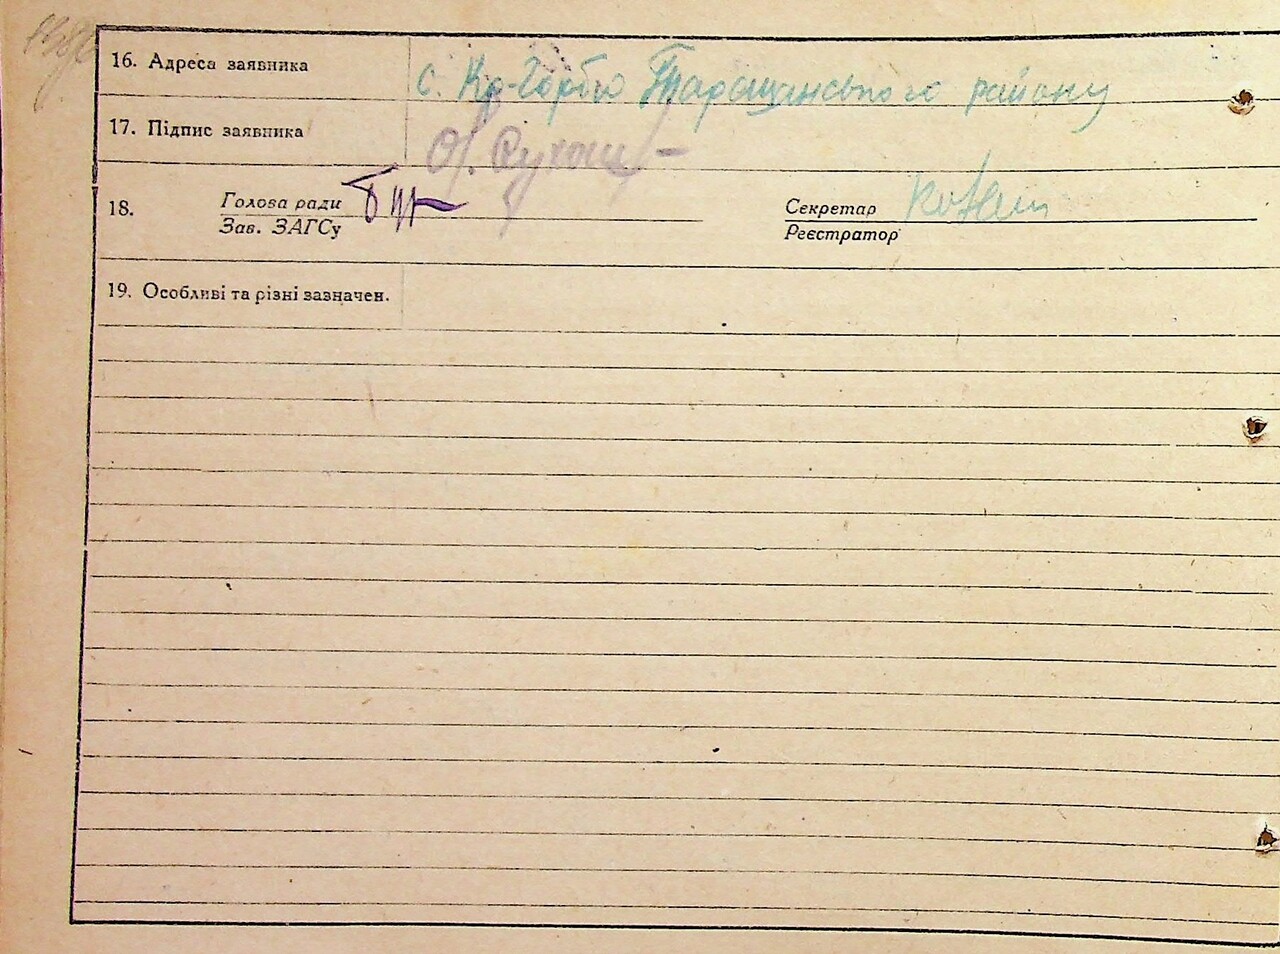 16. Адреса заявника
с. Кр-Горби Таращинського району
17. Підпис заявника
18. Голова ради
Зав. ЗАГСу
Секретар
Реєстратор
19. Особливі та різні зазначен.